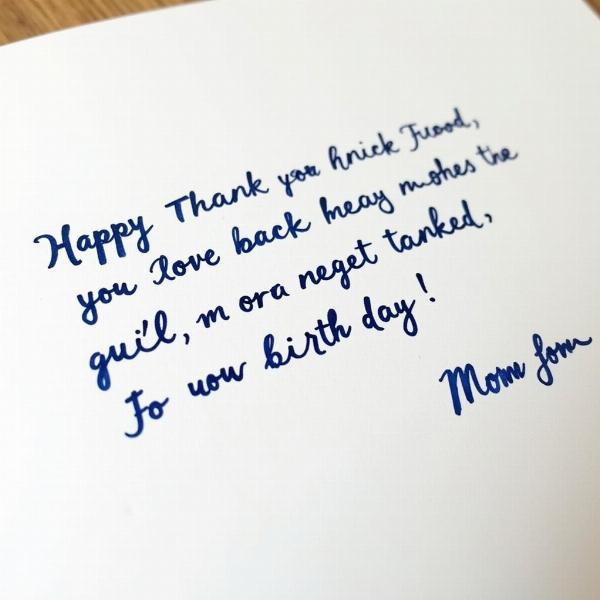 Happy Thank you hnick Fuood,
you love back heay mohes the
guil, m ora neget tanked,
Jo uow birth day!
Mom fom